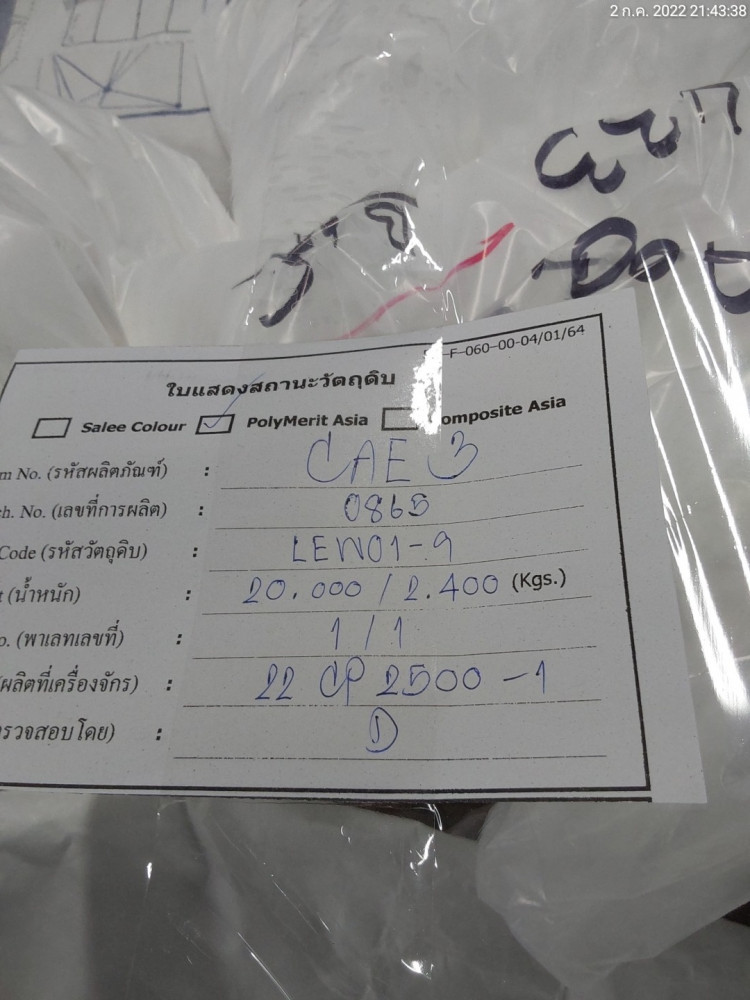 2 ก.ค. 2022 21:43:38
F-060-00-04/01/64
ใบแสดงสถานะวัตถุดิบ
Salee Colour PolyMerit Asia omposite Asia
m No. (รหัสผลิตภัณฑ์) : CAE 3
ch. No. (เลขที่การผลิต) : 0865
Code (รหัสวัตถุดิบ) : LEW01-9
t (น้ำหนัก) : 20.000 / 2.400 (Kgs.)
o. (พาเลทเลขที่) : 1 / 1
ผลิตที่เครื่องจักร) : 22 CP 2500 -1
รวจสอบโดย) : D